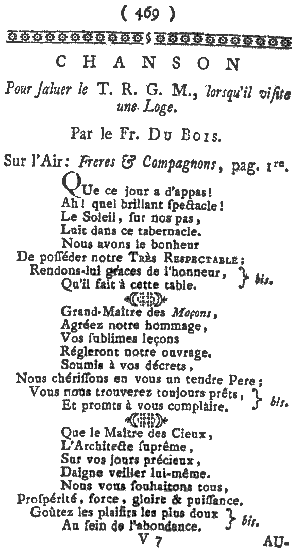 ( 469 )
CHANSON
Pour ſaluer le T. R. G. M., lorsqu'il viſite
une Loge.
Par le Fr. DU BOIS.
Sur l'Air: Freres & Compagnons, pag. 1re.
QUe ce jour a d'appas!
Ah! quel brillant ſpectacle!
Le Soleil, ſur nos pas,
Luit dans ce tabernacle.
Nous avons le bonheur
De poſſéder notre TRÈS RESPECTABLE;
Rendons-lui grâces de l'honneur, } bis.
Qu'il fait à cette table.
Grand-Maître des Maçons,
Agréez notre hommage,
Vos ſublimes leçons
Régleront notre ouvrage.
Soumis à vos décrets,
Nous chériſſons en vous un tendre Pere;
Vous nous trouverez toujours prêts, } bis.
Et promts à vous complaire.
Que le Maître des Cieux,
L'Architecte ſuprême,
Sur vos jours précieux,
Daigne veiller lui-même.
Nous vous ſouhaitons tous,
Proſpérité, force, gloire & puiſſance.
Goûtez les plaiſirs les plus doux } bis.
Au ſein de l'abondance.
V 7 AU-